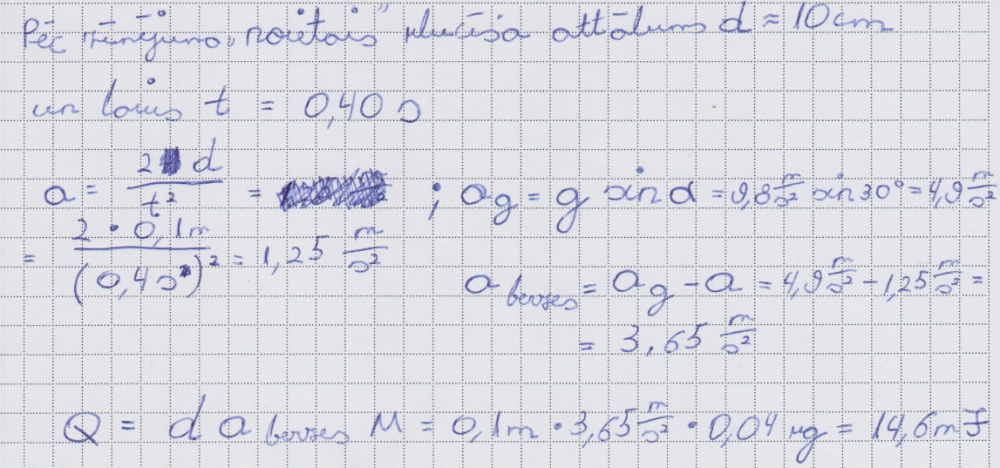 Pēc zīmējuma, noietais klucīša attālums d ≈ 10 cm
un laiks t = 0,40 s
a = 2 d / t² = ; a_g = g sin α = 9,8 m/s² sin 30° = 4,9 m/s²
= 2 · 0,1 m / (0,4 s)² = 1,25 m/s²
a berzes = a_g - a = 4,9 m/s² - 1,25 m/s² =
= 3,65 m/s²
Q = d a berzes M = 0,1 m · 3,65 m/s² · 0,04 kg = 14,6 mJ